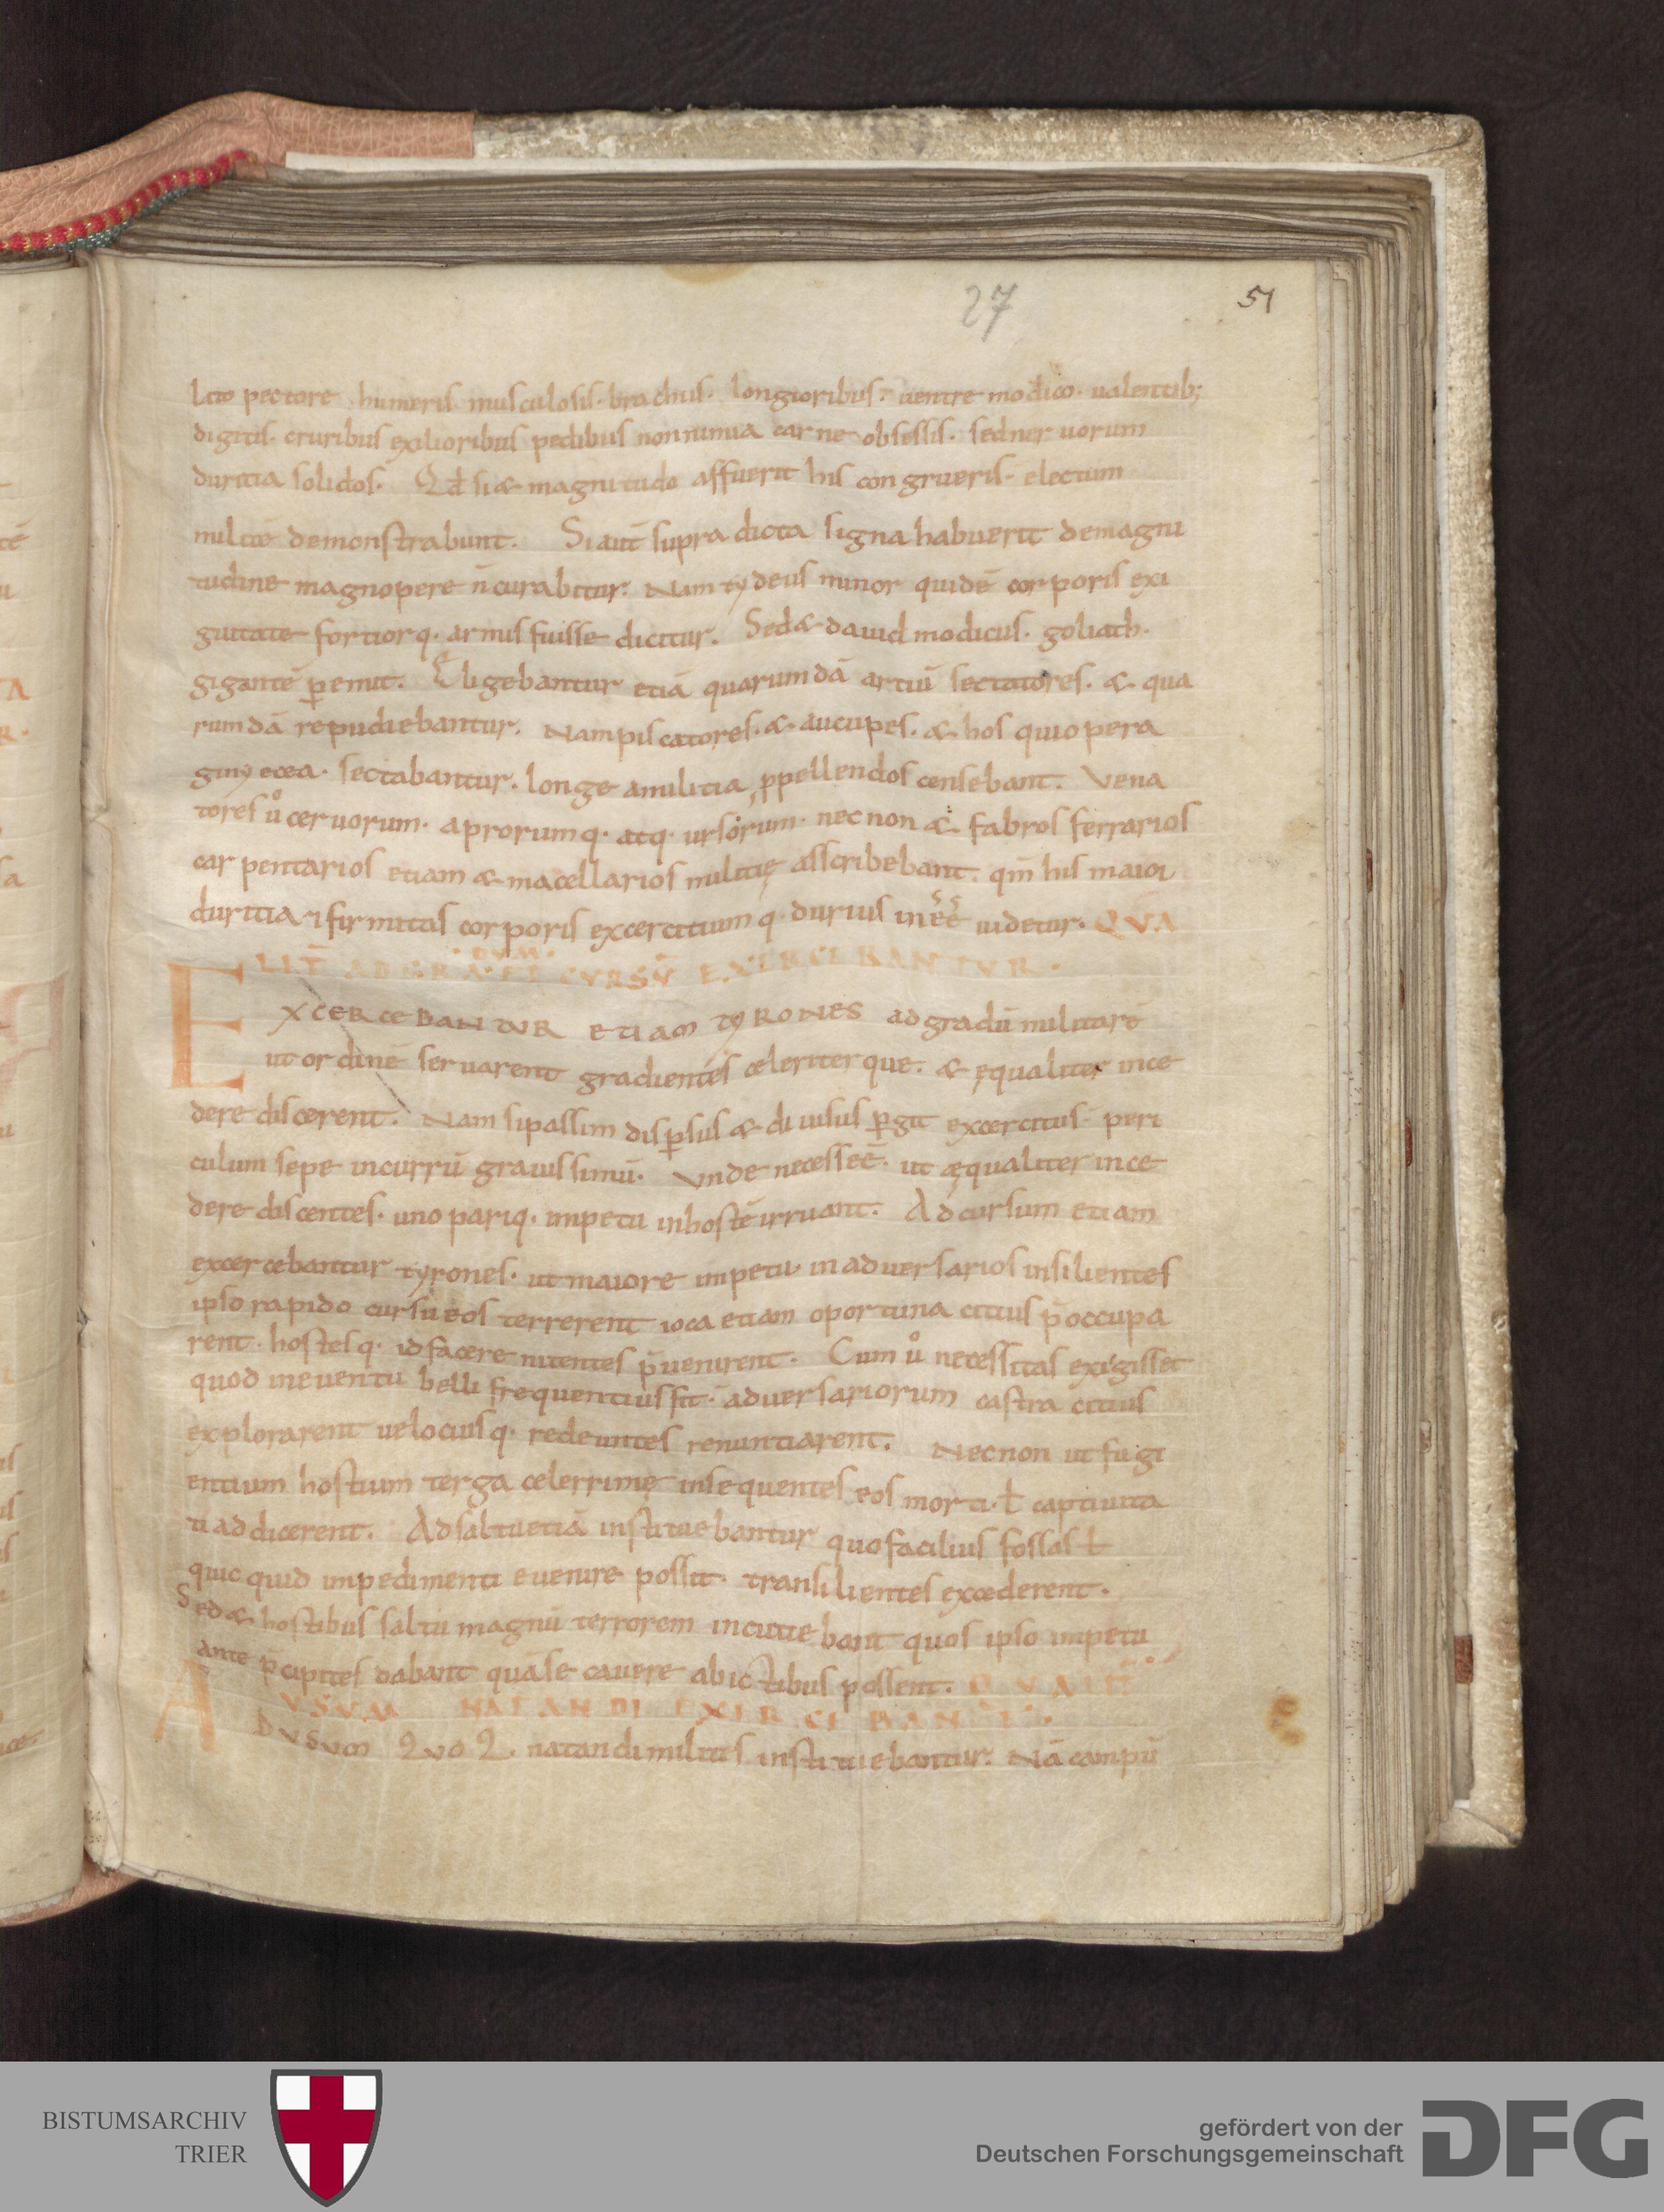 27
51
lato pectore humeris musculosis· brachiis· longioribus· uentre modico· ualentib;
digitis· cruribus exilioribus pedibus non nimia carne obsessis· sed neruorum
duritia solidos· Qđ si & magnitudo affuerit his congrueris· electum
militē demonstrabunt. Si aut̄ supra dicta signa habuerit de magni
tudine magnopere n̄ curabitur. Nam tydeus minor quidē corporis exi
guitate fortiorq· armis fuisse dicitur. Sed & dauid modicus· goliath·
gigantē ꝑemit. Eligebantur etiā quarumdā artiū sectatores· & qua
rumdā repudiebantur. Nam piscatores· & aucupes· & hos qui opera
ginyecea· sectabantur· longe amilitia ꝓpellendos censebant. Vena
tores ů ceruorum· aprorumq· atq· ursorum· nec non & fabros ferrarios
carpentarios etiam & macellarios militię asscribebant· qm̄ his maior
duritia ⁊ firmitas corporis excercitiumq· durius inēē uidetur· QVA
LIT̄ AD GRADVM· ET CVRSV̄ EXERCEBANTVR·
EXCERCEBANTUR etiam TYRONES ad gradū militarē
ut ordinē seruarent gradientes celeriterque· & ęqualiter ince
dere discerent. Nam si passim disꝑsus & diuisus ꝑgit excercitus peri
culum sepe incurrū grauissimū. Vnde necesseē· ut æqualiter ince
dere discentes· uno pariq· impetu in hostē irruant. Ad cursum etiam
excercebantur tyrones· ut maiore impetu in aduersarios insilientes
ipso rapido cursu eos terrerent ioca etiam oportuna citius p̄occupa
rent· hostesq· id facere nitentes p̄uenirent. Cum ů necessitas exigisset
quod in euentu belli frequentius fit· aduersariorum castra citius
explorarent uelociusq· redeuntes renuntiarent. Nec non ut fugi
entium hostium terga celerrimę insequentes eos morti· ł captiuita
ti addicerent. Ad saltu etiā instituebantur quo facilius fossas ł
quicquid impedimenti euenire possit· transilientes excederent.
Sed & hostibus saltu magnū terrorem incutiebant quos ipso impetu
ante p̄cipites dabant quā se cauere ab ictibus possent. QVALIT̄
AD VSVM NATANDI EXERCEBANT̄·
ADVSVM QVOQ· natandi milites instituebantur. Nā campū
BISTUMSARCHIV
TRIER
gefördert von der
Deutschen Forschungsgemeinschaft
DFG